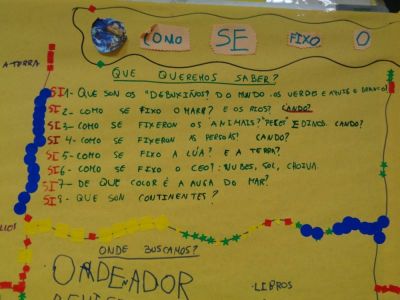 COMO SE FIXO O
A TERRA
QUE QUEREMOS SABER?
SI 1- QUE SON OS "DEBUXIÑOS? DO MUNDO. OS VERDE E AZUIS E BRANCO)
SI 2- COMO SE FIXO O MAR? E OS RIOS? CANDO?
SI 3- COMO SE FIXERON OS ANIMAIS? "PEIXES" E DINOS. CANDO?
SI 4- COMO SE FIXERON AS PERSOAS? CANDO?
SI 5- COMO SE FIXO A LÚA? E A TERRA?
SI 6- COMO SE FIXO O CEO? NUBES, SOL, CHOIVA.
SI 7- DE QUE COLOR É A AUGA DO MAR?
SI 8- QUE SON CONTINENTES?
ONDE BUSCAMOS?
ORDENADOR
·LIBROS